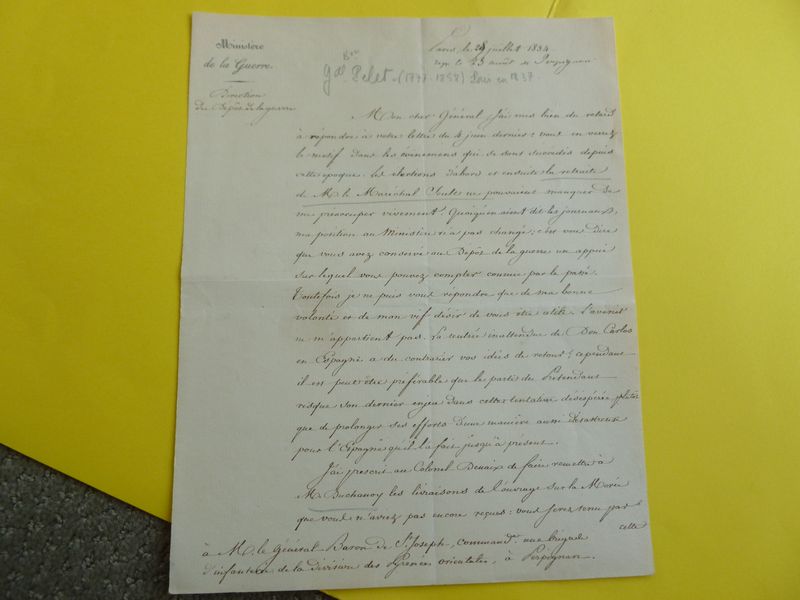 Ministère
de la Guerre.
Direction
du Dépôt de la guerre
Paris, le 28 juillet 1834
reçu le 23 août à Perpignan
Bon
gal Pelet (1777-1858) Pair en 1837.
Mon cher Général, J'ai mis bien du retard
à répondre à votre lettre du 4 juin dernier: vous en verrez
le motif dans les événemens qui se sont succédés depuis
cette époque. les élections d'abord et ensuite la retraite
de M. le Maréchal Soult ne pouvaient manquer de
me préoccuper vivement. Quoiqu'en aient dit les journaux,
ma position au Ministère n'a pas changé; c'est vous dire
que vous avez conservé au Dépôt de la guerre un appui
sur lequel vous pouvez compter comme par le passé.
Toutefois je ne puis vous répondre que de ma bonne
volonté et de mon vif désir de vous être utile. L'avenir
ne m'appartient pas. La rentrée inattendue de Don Carlos
en Espagne a du contrarier vos idées de retour; cependant
il eut peut-être préférable que le parti du Prétendant
risque son dernier enjeu dans cette tentative désespérée plutôt
que de prolonger ses efforts d'une manière aussi désastreuse
pour l'Espagne qu'il l'a fait jusqu'à présent.
J'ai prescrit au Colonel de faire remettre à
M. Buchanoy les livraisons de l'ouvrage sur la Morée
que vous n'aviez pas encore reçues: vous serez tenu par
cette
à M. le Général Baron de St Joseph, commandt une brigade
d'infanterie de la division des Pyrénées orientales, à Perpignan.